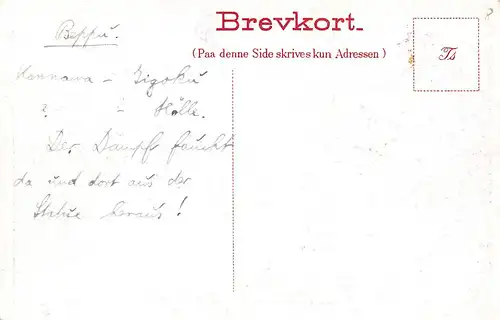 Beppu.
Brevkort.
(Paa denne Side skrives kun Adressen)
Ts
Kannawa – Jigoku
? – Hölle.
Der Dampf faucht
da und dort aus der
Statue heraus!